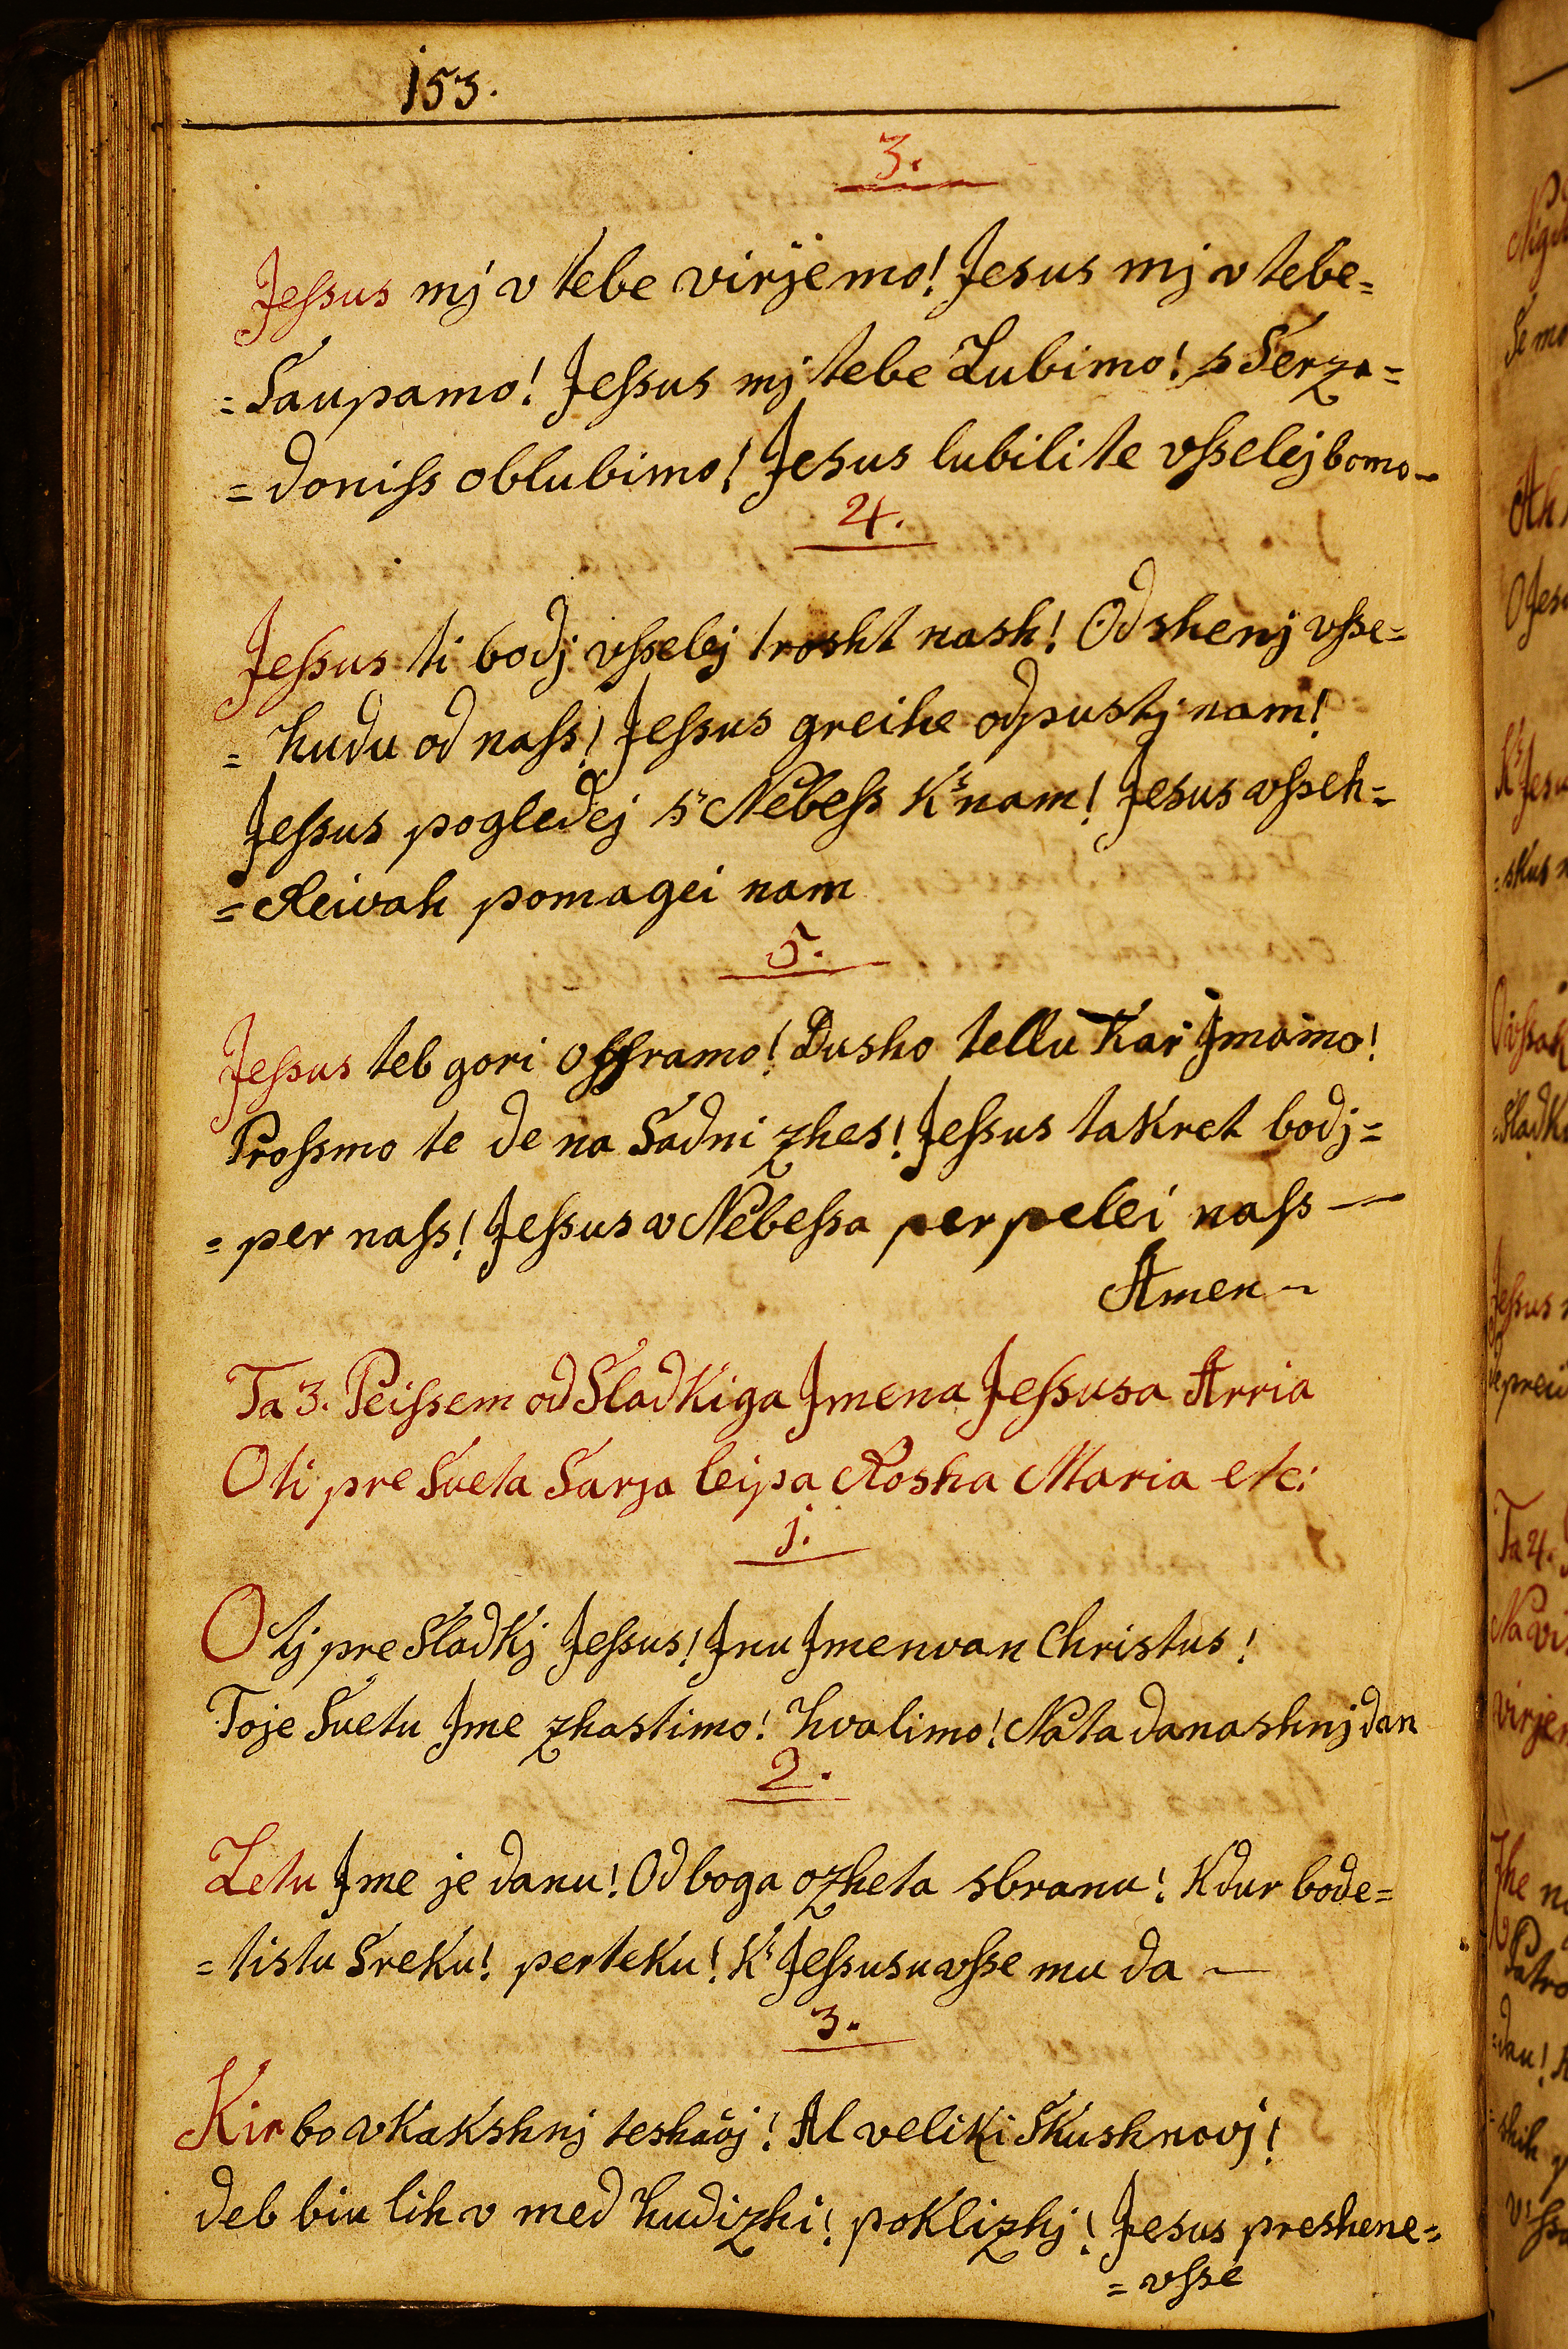 153.
3.
Jeſsus mj v tebe virjemo! Jesus mj v tebe=
=Saupamo! Jeſsus mj tebe Lubimo! s Serza=
=doniſs oblubimo! Jesus lubili te vſselej bomo
4.
Jeſsus ti bodj vſselej trosht nash! Odshenj vſse=
=hudu od naſs! Jeſsus greihe odpustj nam!
Jeſsus pogledej s' Nebeſs K' nam! Jesus vſseh=
=Reivah pomagei nam
5.
Jeſsus teb gori offramo! Dusho tellu Kar Jmamo!
Proſsmo te de na Sadni zhes! Jeſsus takret bodj=
=per naſs! Jeſsus v Nebeſsa perpelei naſs
Amen
Ta 3. Peiſsem od Sladkiga Jmena Jeſsusa Arria
O ti pre Sveta Sarja leipa Rosha Maria etc:
1.
O tj pre Sladkj Jeſsus! Jnu Jmenvan Christus!
Toje Svetu Jme zhastimo! hvalimo! Na ta danashnj dan
2.
Letu Jme je danu! Od boga ozheta sbranu! Kdur bode=
=tistu Sreku! perteku! K' Jeſsusu vſse mu da
3.
Kir bo v Kakshnj teshavj! Al veliki Skushnovj!
deb biu lih v med hudizhi! poklizhj! Jesus preshene=
=vſse